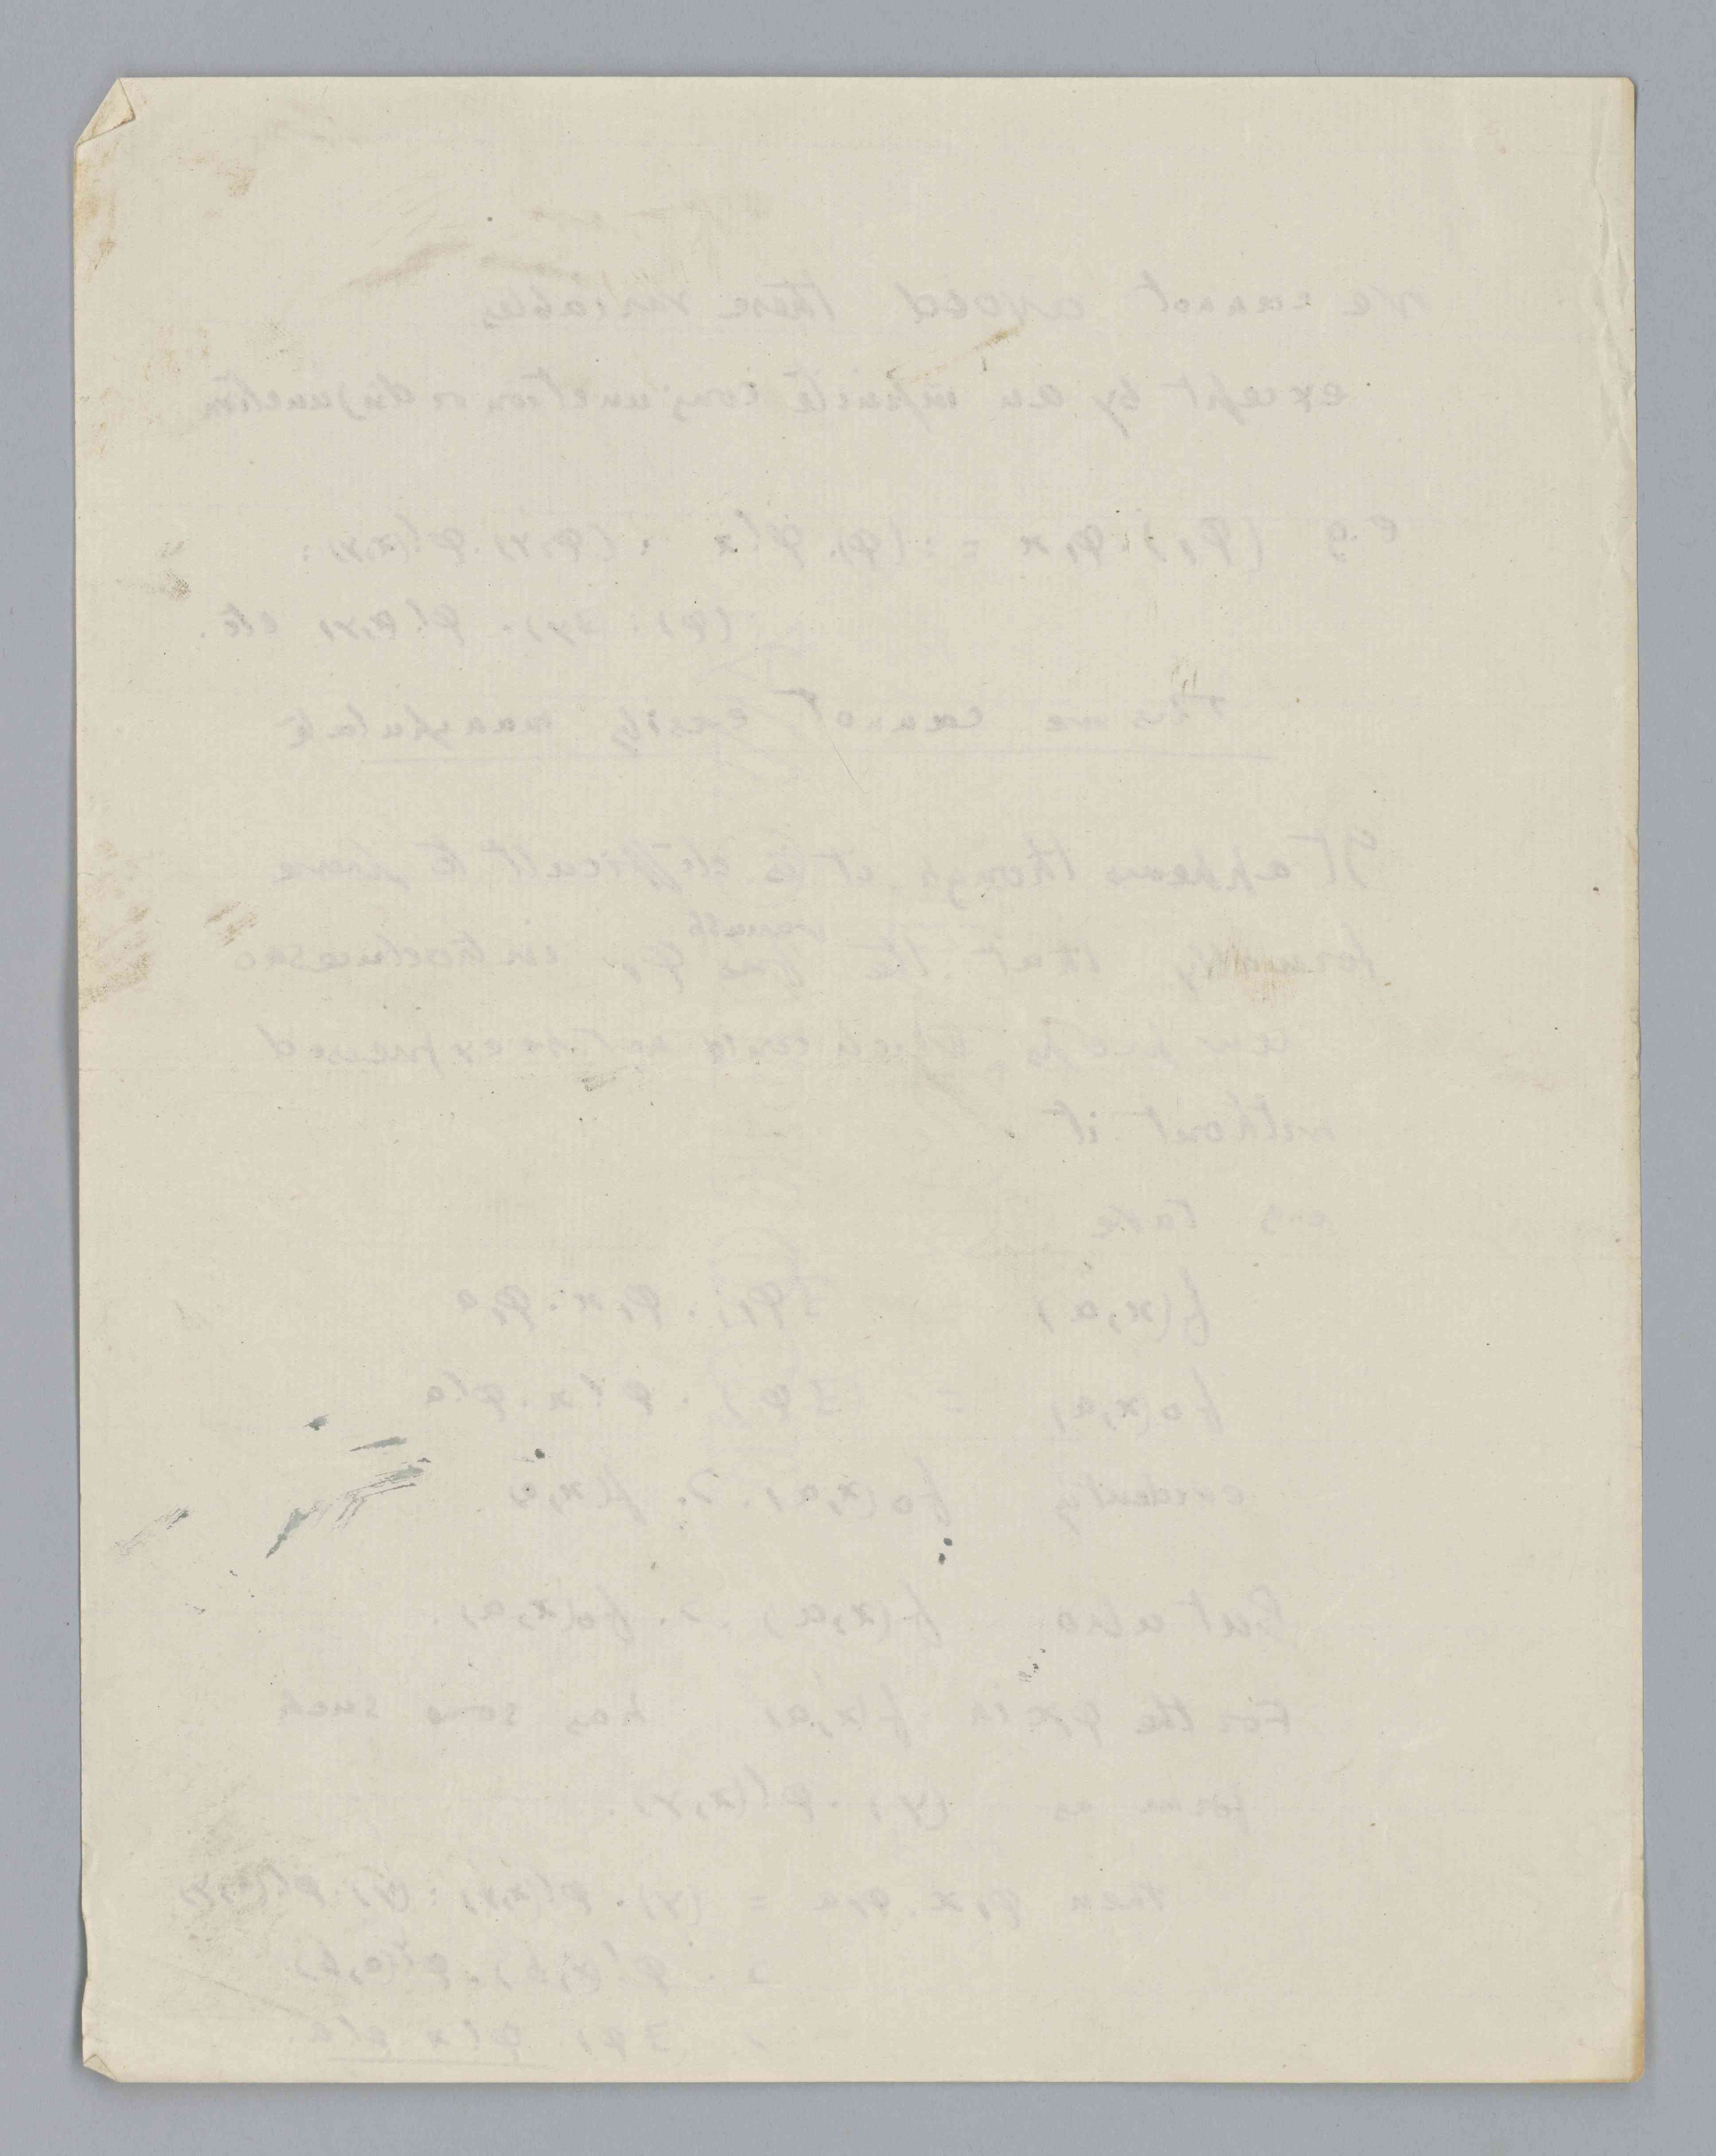 we cannot avoid these variables
except by an infinite conjunction or disjunction
e.g. (φ₁). φ₁x = : (φ). φ!x : (φ,y). φ!(x,y) :
(φ): ∃y). φ!(x,y) etc.
This we cannot easily manipulate
It appears though it is difficult to prove
formally that the φ₁ introduces no
new which could not be expressed
without it
e.g. Take
f(x,a) ∃φ₁). φ₁x. φ₁a
f₀(x,a) = ∃φ). φ!x. φ!a
evidently f₀(x,a). ⊃. f(x,a)
But also f(x,a). ⊃. f₀(x,a).
For the φ₁x in f(x,a) has some such
form as (y). φ!(x,y).
then φ₁x. φ₁a = (y). φ!(x,y) : (y). φ!(a,y)
⊃. φ!(x,b). φ!(a,b)
⊃ ∃φ) φ!x φ!a